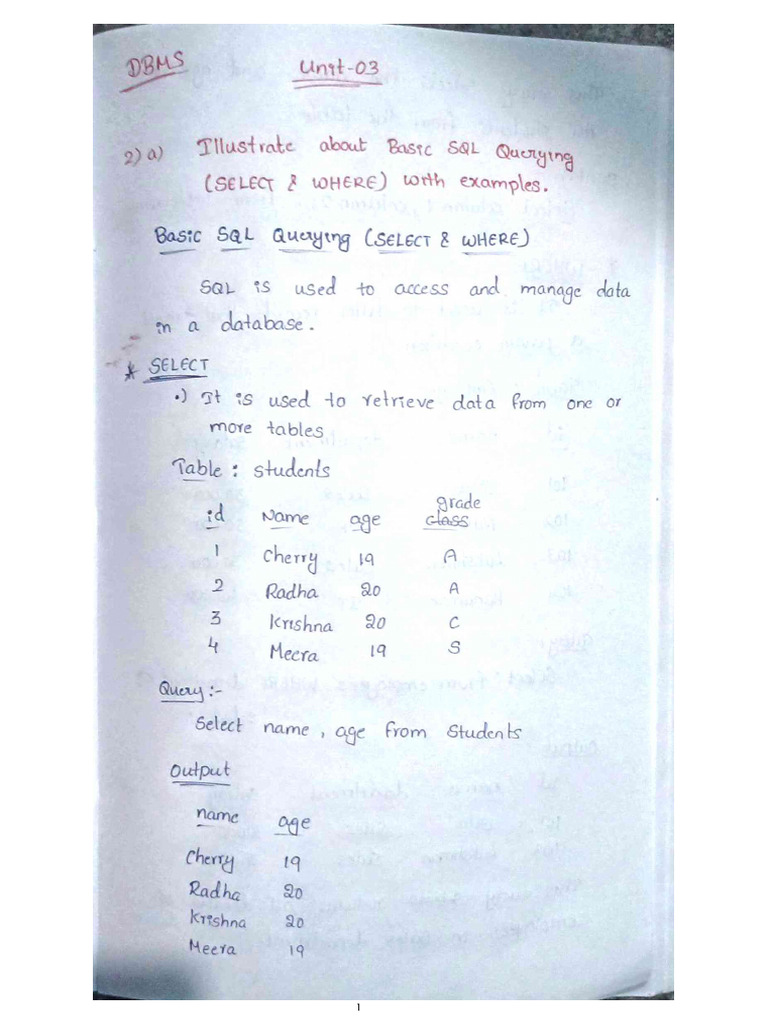 DBMS Unit-03
2) a) Illustrate about Basic SQL Querying
(SELECT & WHERE) with examples.
Basic SQL Querying (SELECT & WHERE)
SQL is used to access and manage data
in a database.
* SELECT
•) It is used to retrieve data from one or
more tables
Table : students
id Name age grade
class
1 Cherry 19 A
2 Radha 20 A
3 Krishna 20 C
4 Meera 19 S
Query :-
Select name , age from Students
Output
name age
Cherry 19
Radha 20
Krishna 20
Meera 19
1